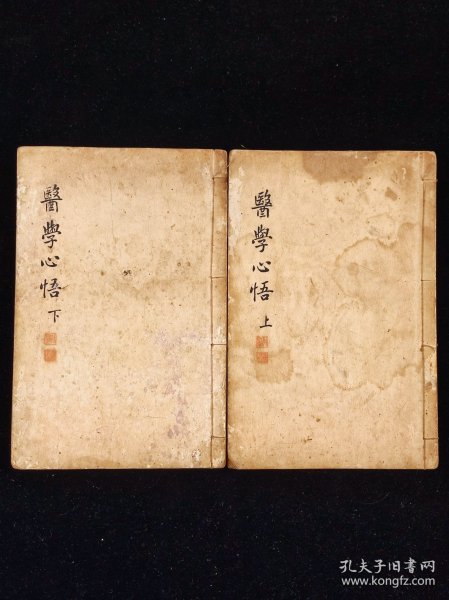 醫學心悟
上
醫學心悟
下
孔夫子旧书网
www.kongfz.com